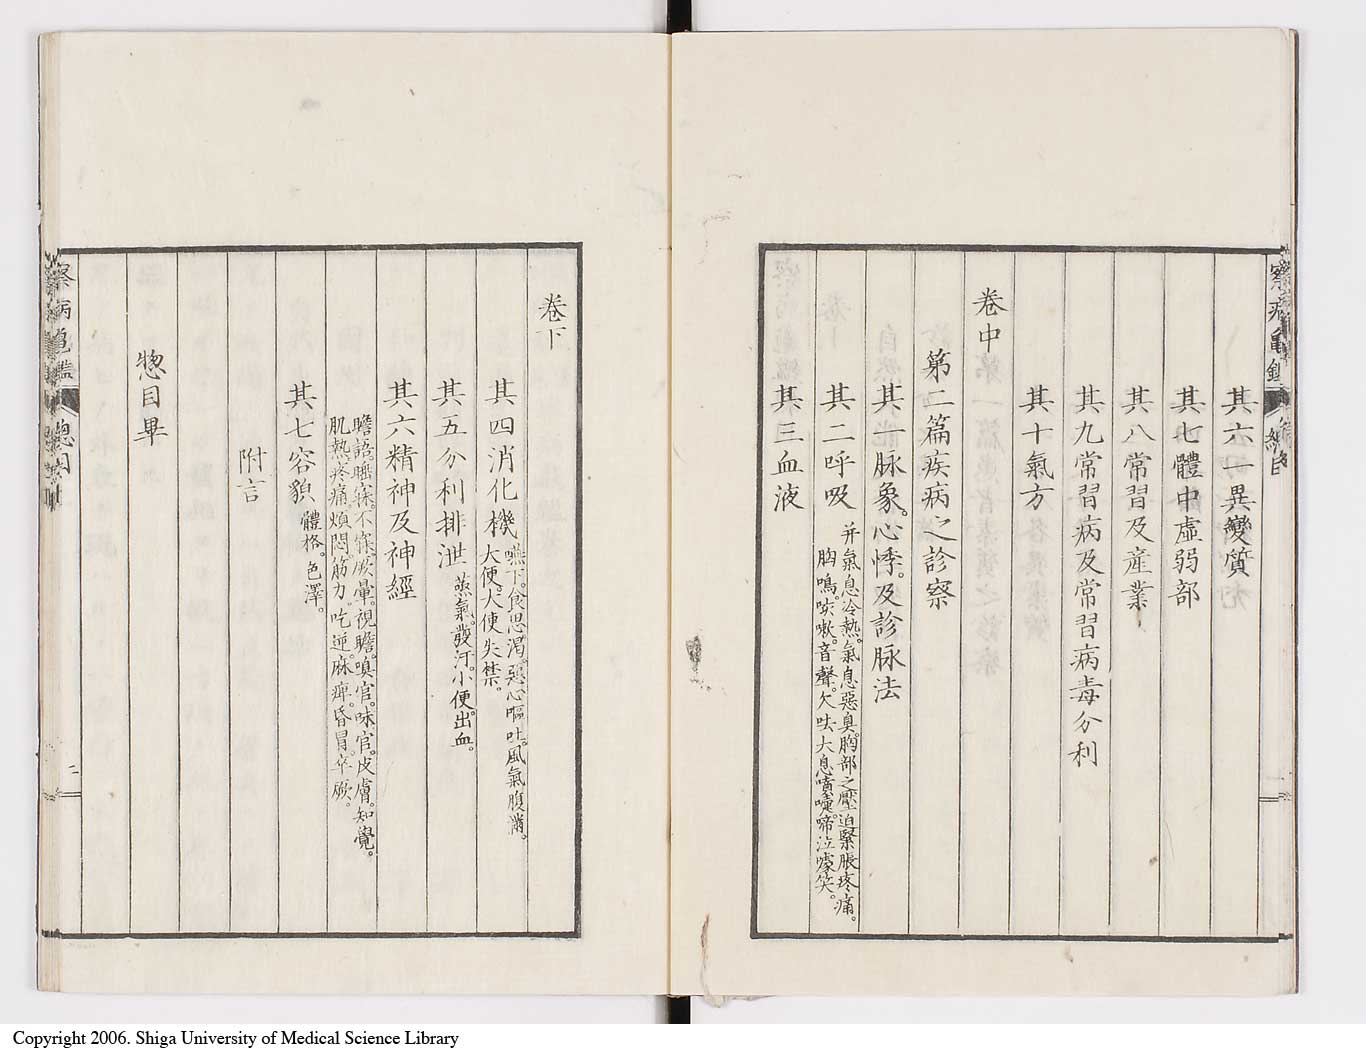 察病龜鑑 總目
其六一異變質
其七體中虛弱部
其八常習及産業
其九常習病及常習病毒分利
其十氣方
卷中
第二篇疾病之診察
其一脈象。心悸。及診脈法
其二呼吸 并氣息冷熱。氣息惡臭。胸部之壓迫緊脹疼痛。
胸鳴。咳嗽。音聲。欠呿大息噴嚏。啼泣噱笑。
其三血液
卷下
其四消化機 嚥下。食思渴。惡心嘔吐。風氣腹滿。
大便。大便失禁。
其五分利排泄 蒸氣。發汗。小便。出血。
其六精神及神經
譫語。睡寐。不寐。厥暈。視瞻。嗅官。味官。皮膚。知覺。
肌熱疼痛。煩悶。筋力。吃逆。麻痺。昏冒。卒厥。
其七容貌 體格。色澤。
附言
惣目畢
察病龜鑑 總目
二
Copyright 2006. Shiga University of Medical Science Library